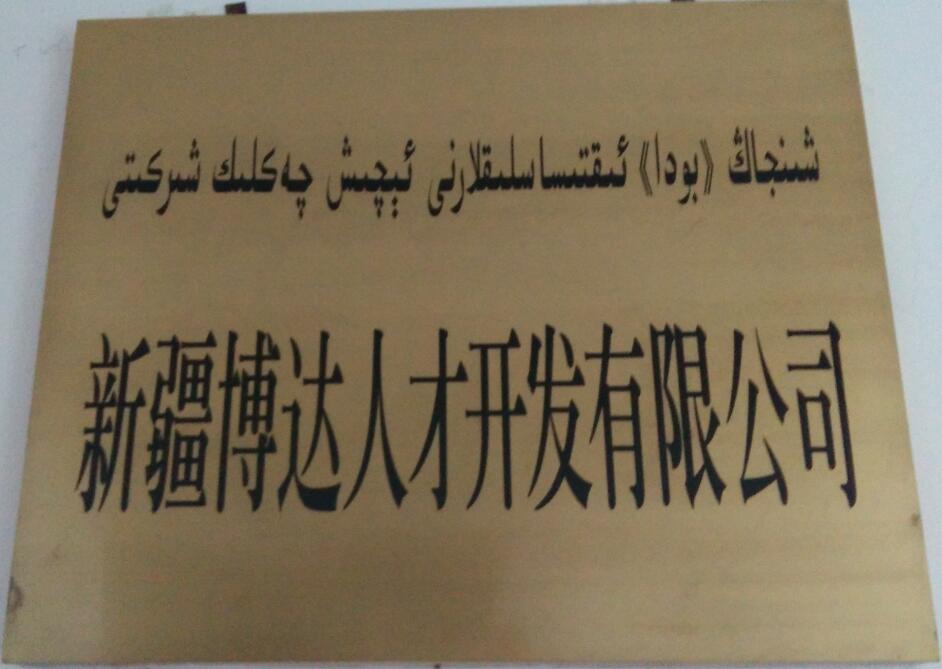 شىنجاڭ 《بودا》 ئىقتىساسلىقلارنى ئېچىش چەكلىك شىركىتى
新疆博达人才开发有限公司